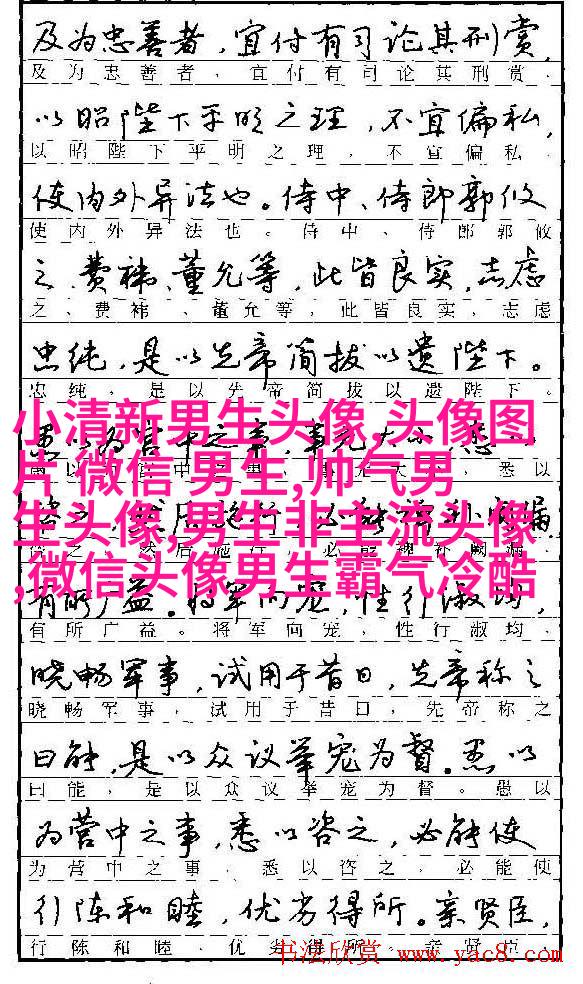 及为忠善者，宜付有司论其刑赏，
及为忠善者，宜付有司论其刑赏，
以昭陛下平明之理，不宜偏私，
以昭陛下平明之理，不宜偏私，
使内外异法也。侍中、侍郎郭攸
使内外异法也。侍中、侍郎郭攸
之、费祎、董允等，此皆良实，志虑
之、费祎、董允等，此皆良实，志虑
忠纯，是以先帝简拔以遗陛下。
忠纯，是以先帝简拔以遗陛下。
小清新男生头像,头像图
片 微信 男生,帅气男
生头像,男生非主流头像
,微信头像男生霸气冷酷
中之事，事无大 悉以
悉以
之，然后施行，必 补 漏
之，然后施行，必能裨补阙漏，
有所广益。将军向宠，性行淑均，
有所广益。将军向宠，性行淑均，
晓畅军事，试用于昔日，先帝称之
晓畅军事，试用于昔日，先帝称之
曰能，是以众议举宠为督。愚以
曰能，是以众议举宠为督。愚以
为营中之事，悉以咨之，必能使
为营中之事，悉以咨之，必能使
行陈和睦，优劣得所。亲贤臣，
行陈和睦，优劣得所。亲贤臣，
书法欣赏 www.yac8.com